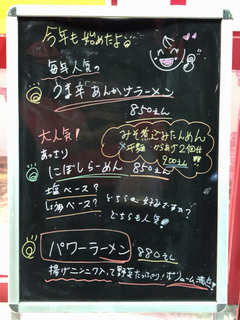 今年も始めたよ
毎年人気の
うま辛あんかけラーメン
850えん
大人気!
あっさり
にぼしらーめん 850えん
みそ煮込みたんめん
平麺 からあげ2個付
900えん!!
塩ベース?
しょう油ベース?
どちらがお好みですか?
どちらも人気!
パワーラーメン 880えん
揚げニンニク入って野菜たっぷり!ボリューム満点